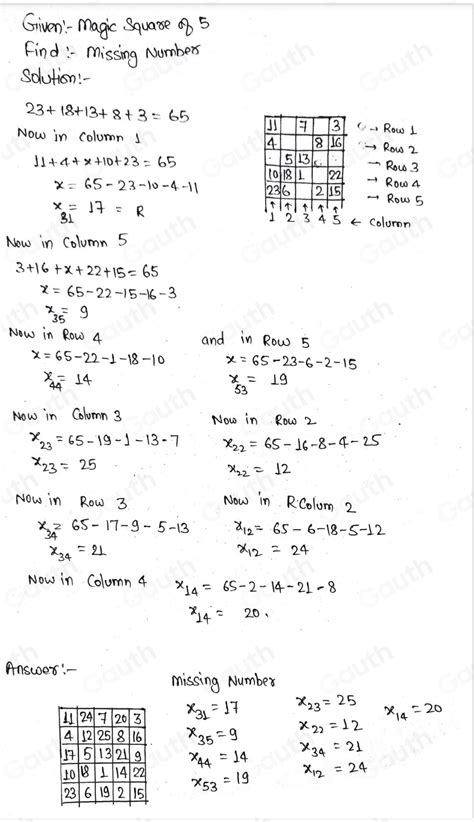 Given:- Magic Square of 5
Find :- Missing Number
Solution:-
23+18+13+8+3 = 65
Now in Column 1
11+4+x+10+23 = 65
x = 65-23-10-4-11
x31 = 17 = R
11 7 3 → Row 1
4 8 16 → Row 2
5 13 → Row 3
10 18 1 22 → Row 4
23 6 2 15 → Row 5
1 2 3 4 5 ← Column
Now in Column 5
3+16+x+22+15 = 65
x = 65-22-15-16-3
x35 = 9
Now in Row 4
x = 65-22-1-18-10
x44 = 14
and in Row 5
x = 65-23-6-2-15
x53 = 19
Now in Column 3
x23 = 65-19-1-13-7
x23 = 25
Now in Row 2
x22 = 65-16-8-4-25
x22 = 12
Now in Row 3
x34 = 65-17-9-5-13
x34 = 21
Now in R Colum 2
x12 = 65-6-18-5-12
x12 = 24
Now in Column 4
x14 = 65-2-14-21-8
x14 = 20.
Answer:-
11 24 7 20 3
4 12 25 8 16
17 5 13 21 9
10 18 1 14 22
23 6 19 2 15
Missing Number
x31 = 17
x35 = 9
x44 = 14
x53 = 19
x23 = 25
x22 = 12
x34 = 21
x12 = 24
x14 = 20
Gauth